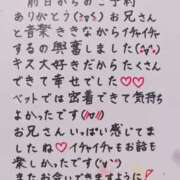 前日からのご予約
ありがとう(>ᴗ<)お兄さん
と音楽ききながらイチャイチャ
するの興奮しました(>ᴗ<)
キス大好きだからたくさん
できて幸せでした♡♡
ベットでは密着できて気持ち
よかったです(//▽//)
お兄さんいっぱい感じて
ましたね♡イチャイチャもお話も
楽しかったです(>ᴗ<)
またお会いできますように